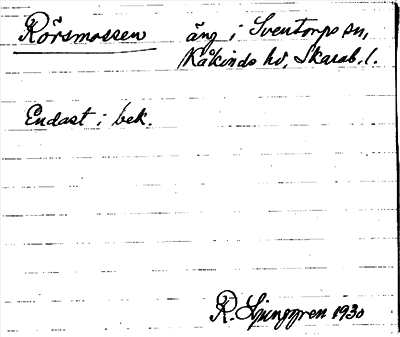 Rörsmossen äng i Sventorps sn,
Kåkinds hd, Skarab. l.
Endast i bek.
R. Ljunggren 1930